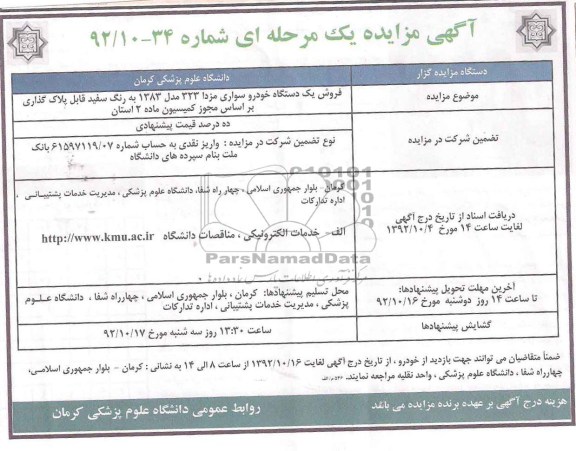 آگهی مزایده یک مرحله ای شماره ۳۴-۹۲/۱۰
دستگاه مزایده گزار
دانشگاه علوم پزشکی کرمان
موضوع مزایده
فروش یک دستگاه خودرو سواری مزدا ۳۲۳ مدل ۱۳۸۳ به رنگ سفید قابل پلاک گذاری
بر اساس مجوز کمیسیون ماده ۲ استان
تضمین شرکت در مزایده
ده درصد قیمت پیشنهادی
نوع تضمین شرکت در مزایده : واریز نقدی به حساب شماره ۶۱۵۹۷۱۱۹/۰۷ بانک
ملت بنام سپرده های دانشگاه
دریافت اسناد از تاریخ درج آگهی
لغایت ساعت ۱۴ مورخ ۱۳۹۲/۱۰/۴
کرمان - بلوار جمهوری اسلامی ، چهار راه شفا، دانشگاه علوم پزشکی ، مدیریت خدمات پشتیبانی ،
اداره تدارکات
الف - خدمات الکترونیکی ، مناقصات دانشگاه http://www.kmu.ac.ir
ParsNamadData
آخرین مهلت تحویل پیشنهادها:
تا ساعت ۱۴ روز دوشنبه مورخ ۹۲/۱۰/۱۶
محل تسلیم پیشنهادها: کرمان ، بلوار جمهوری اسلامی ، چهارراه شفا ، دانشگاه علوم
پزشکی ، مدیریت خدمات پشتیبانی ، اداره تدارکات
گشایش پیشنهادها
ساعت ۱۳:۳۰ روز سه شنبه مورخ ۹۲/۱۰/۱۷
ضمناً متقاضیان می توانند جهت بازدید از خودرو ، از تاریخ درج آگهی لغایت ۱۳۹۲/۱۰/۱۶ از ساعت ۸ الی ۱۴ به نشانی : کرمان - بلوار جمهوری اسلامی،
چهارراه شفا ، دانشگاه علوم پزشکی ، واحد نقلیه مراجعه نمایند.
هزینه درج آگهی بر عهده برنده مزایده می باشد
روابط عمومی دانشگاه علوم پزشکی کرمان